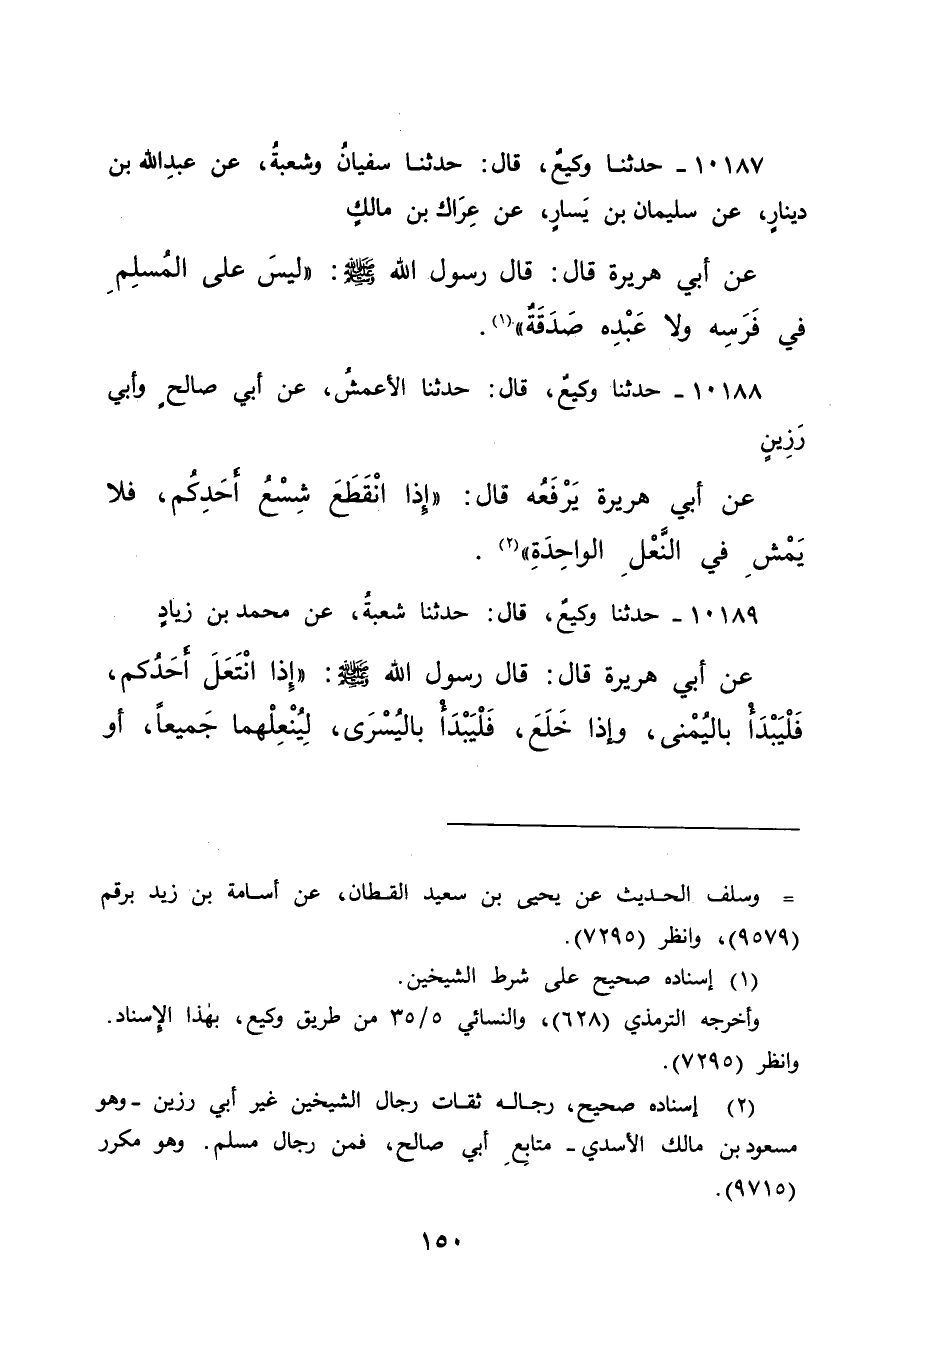 ١٠١٨٧ - حدثنا وكيعٌ، قال: حدثنا سفيانُ وشعبةُ، عن عبدِالله بن
دينارٍ، عن سليمان بن يَسارٍ، عن عِرَاك بن مالكٍ
عن أبي هريرة قال: قال رسول الله ﷺ: «ليسَ على المُسلِمِ
في فَرَسِه ولا عَبْدِه صَدَقَةٌ»(١).
١٠١٨٨ - حدثنا وكيعٌ، قال: حدثنا الأعمشُ، عن أبي صالحٍ وأبي
رَزِينٍ
عن أبي هريرة يَرْفَعُه قال: «إِذا انْقَطَعَ شِسْعُ أَحَدِكُم، فلا
يَمْشِ في النَّعْلِ الواحِدَةِ»(٢) .
١٠١٨٩ - حدثنا وكيعٌ، قال: حدثنا شعبةُ، عن محمد بن زيادٍ
عن أبي هريرة قال: قال رسول الله ﷺ: «إِذا انْتَعَلَ أَحَدُكم،
فَلْيَبْدَأْ باليُمْنى، وإذا خَلَعَ، فَلْيَبْدَأْ باليُسْرَى، لِيُنْعِلْهما جَميعاً، أو
= وسلف الحديث عن يحيى بن سعيد القطان، عن أسامة بن زيد برقم
(٩٥٧٩)، وانظر (٧٢٩٥).
(١) إسناده صحيح على شرط الشيخين.
وأخرجه الترمذي (٦٢٨)، والنسائي ٣٥/٥ من طريق وكيع، بهٰذا الإِسناد.
وانظر (٧٢٩٥).
(٢) إسناده صحيح، رجاله ثقات رجال الشيخين غير أبي رزين -وهو
مسعود بن مالك الأسدي- متابِعِ أبي صالح، فمن رجال مسلم. وهو مكرر
(٩٧١٥).
١٥٠